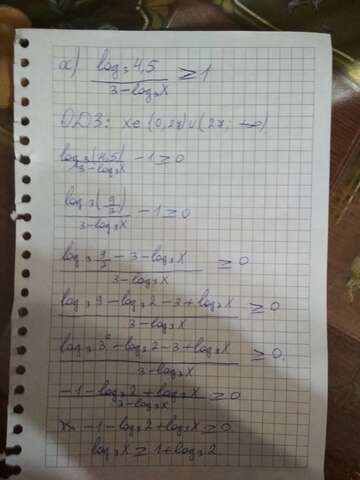 х) log₃4,5 / (3-log₃x) ≥ 1
ОДЗ: x∈(0;27)∪(27; +∞)
log₃(4,5) / (3-log₃x) - 1 ≥ 0
log₃(9/2) / (3-log₃x) - 1 ≥ 0
(log₃ 9/2 - 3 - log₃x) / (3-log₃x) ≥ 0
(log₃9 - log₃2 - 3 + log₃x) / (3-log₃x) ≥ 0
(log₃3² - log₃2 - 3 + log₃x) / (3-log₃x) ≥ 0.
(-1 - log₃2 + log₃x) / (3-log₃x) ≥ 0
-1 - log₃2 + log₃x ≥ 0
log₃x ≥ 1 + log₃2